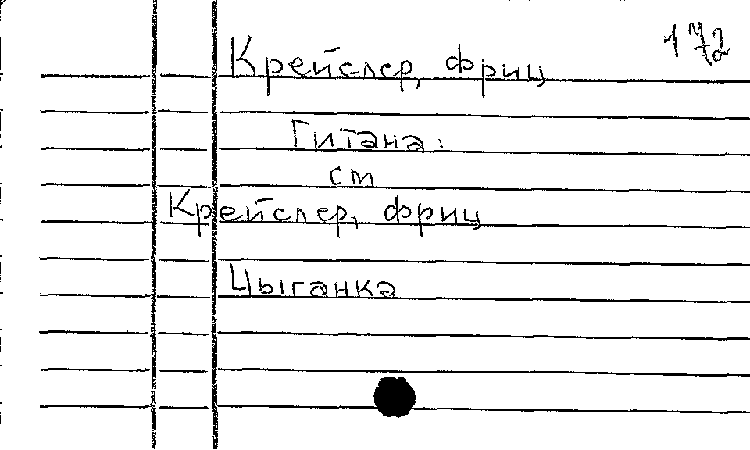 172
Крейслер, Фриц
Гитана:
см
Крейслер, Фриц
Цыганка